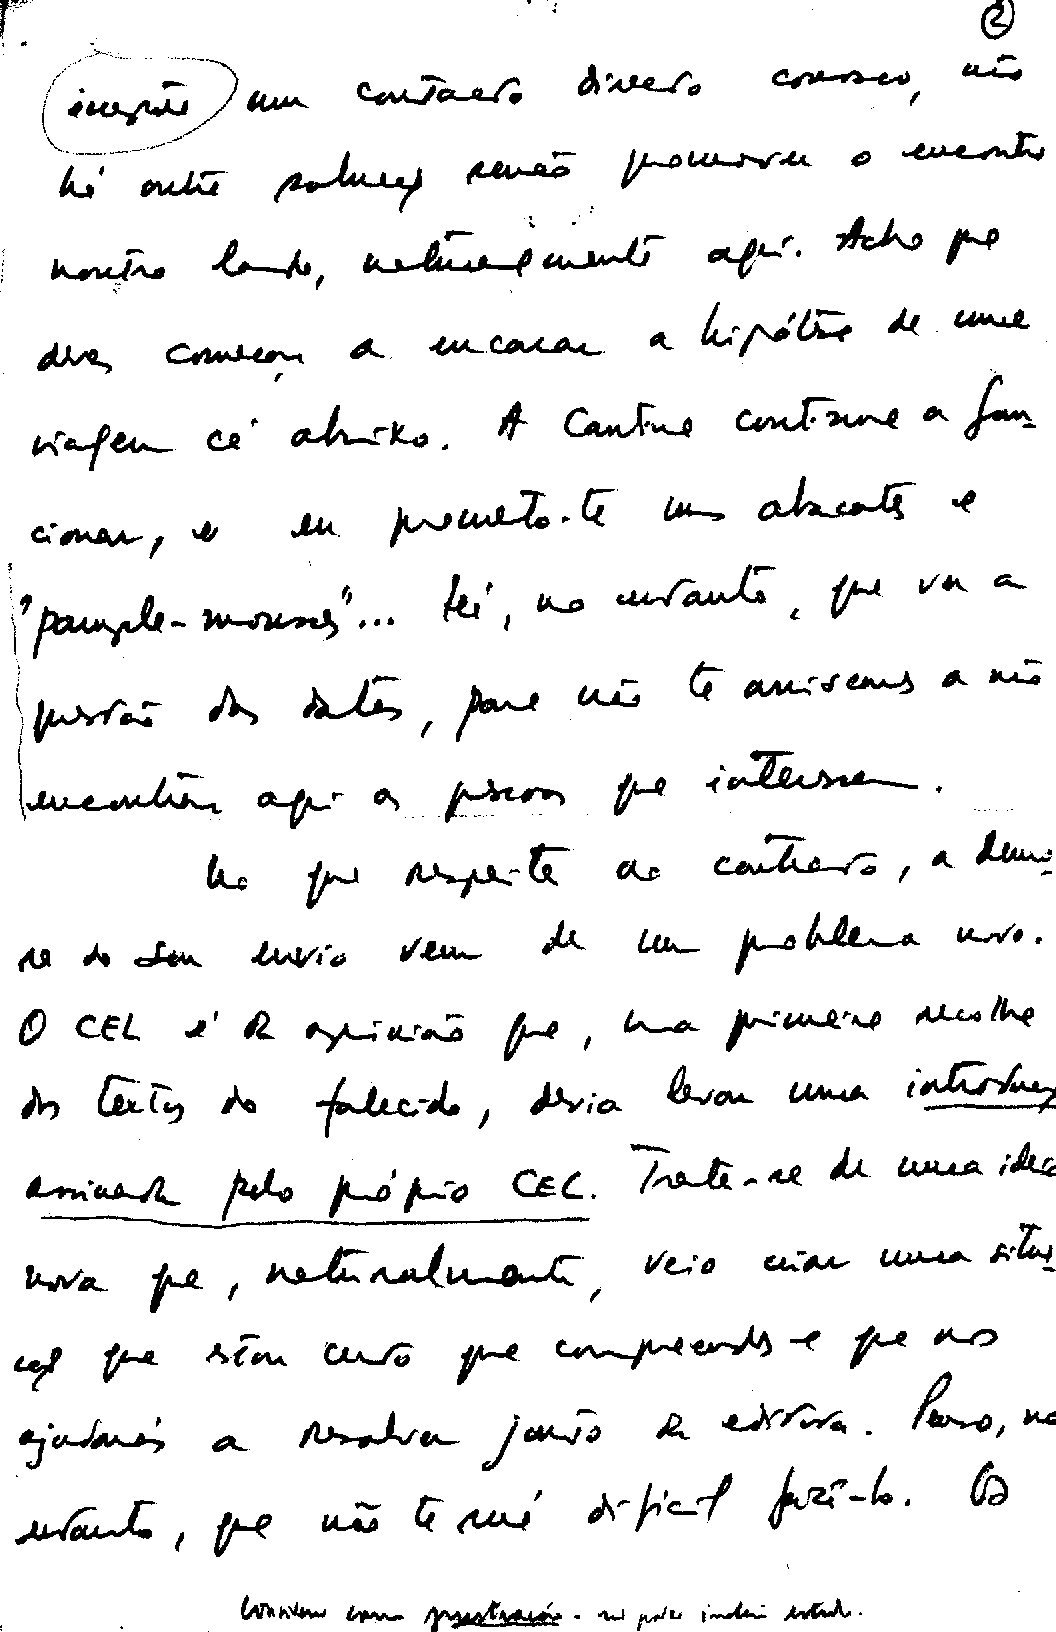 2
um contacto directo conosco, não
há outra solução senão promover o encontro
noutro lado, naturalmente aqui. Acho que
deves começar a encarar a hipótese de uma
viagem cá abaixo. A Cantina continua a fun-
cionar, e eu prometo-te uns abacates e
"pample-mousses"... Há, no entanto, que ver a
questão das datas, para não te arriscares a não
encontrar aqui as pessoas que interessam.
No que respeita ao contrato, a demo-
ra do seu envio vem de um problema novo.
O CEL é da opinião que, na primeira recolha
dos textos do falecido, devia levar uma introdução
assinada pelo próprio CEL. Trata-se de uma ideia
nova que, naturalmente, veio criar uma situa-
ção que estou certo que compreendes e que nos
ajudarás a resolver junto da editora. Penso, no
entanto, que não te será difícil fazê-lo. Os
como - não poder incluir